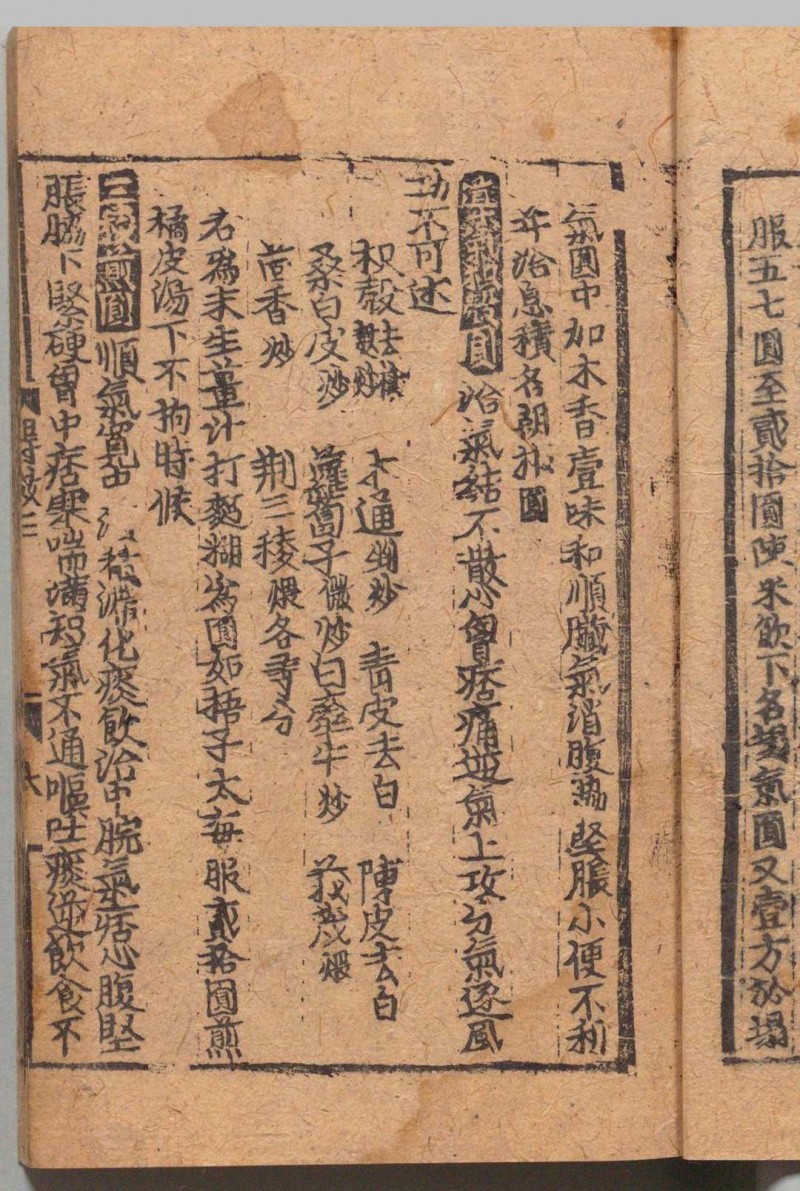 服五七圓至貳拾圓陳米飲下名塌氣圓又壹方於塌
氣圓中加木香壹味和順臟氣消腹脇堅脹小便不利
年治息積名朝
治氣結不散心胷痞痛逆氣上攻分氣逐風
功不可述
枳殼去穰麩炒 木通剉炒 青皮去白 陳皮去白
桑白皮炒 蘿蔔子微炒 白牽牛炒 莪茂煨
茴香炒 荆三稜煨各等分
右爲末生薑汁打麪糊爲圓如梧子大每服貳拾圓煎
橘皮湯下不拘時候
圓 順氣寬 滯化痰飲治中脘氣痞心腹堅
脹脇下緊硬胷中痞塞喘滿短氣不通嘔吐痰逆飲食不
六